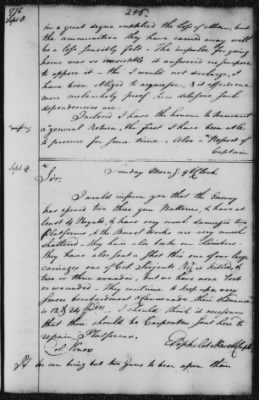 1776
Sept 8.
215.
in a great degree supplied the loss of them, but
the ammunition they have carried away will
be a loss sensibly felt. The impulse for going
home was so irresistible it answered no purpose
to oppose it. tho' I would not discharge, I
have been obliged to acquiesce, & it affords one
more melancholy proof, how delusive such
dependencies are.
Inclosed I have the honour to transmit
a general Return, the first I have been able
to procure for some time. Also a Report of
Captain
Sept 8.
Sunday Morng 9 OClock
Sir.
I would inform you that the Enemy
has opened two three gun Batteries, & have at
least
Royals, & have very much damaged two
Platforms, & the Breast Works are very much
shattered. They have also broke our Limbers.
They have also just a Shot thro one of our large
carriages one of Colo Sergents
is killed, &
two or three wounded; but we have none lost
or wounded. They continue to keep up very
severe bombardment & Cannonade their Cannon
is 12 & 24 Pdrs. I should think it necessary
that there should be Carpenters sent here to
repair Platforms.
Eliphalet Newell Capt
Col. Knox
PS We can bring but two Guns to bear upon them